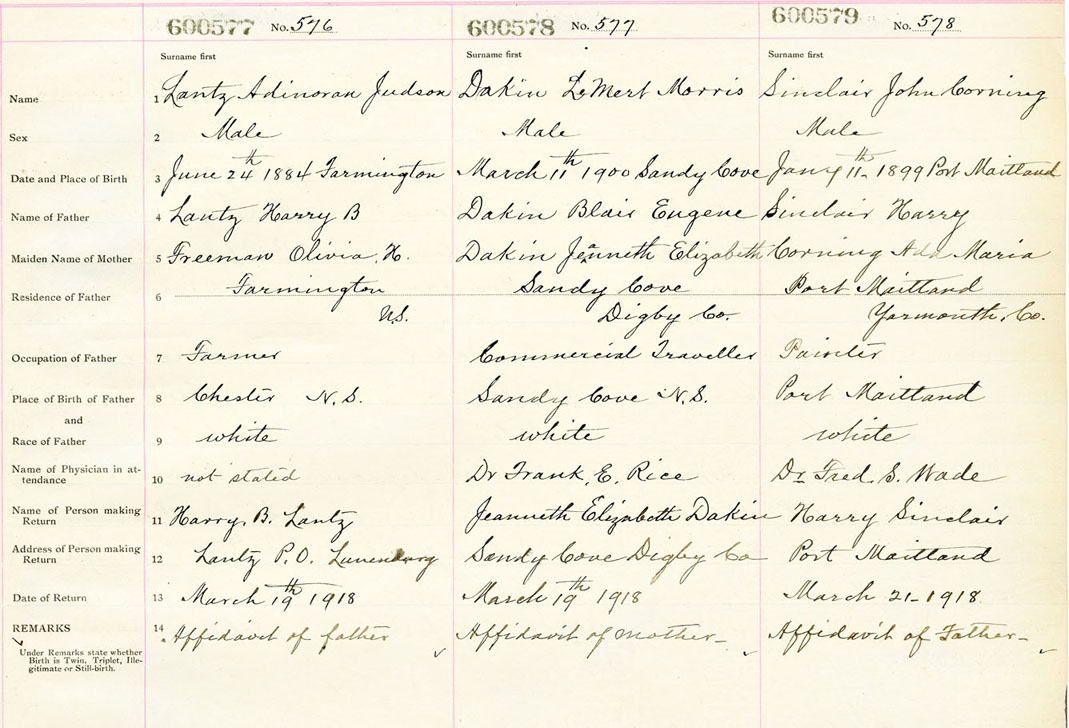 600577 No. 576 600578 No. 577 600579 No. 578
Surname first Surname first Surname first
Name 1 Lantz Adinoran Judson Dakin LeMert Morris Sinclair John Corning
Sex 2 Male Male Male
Date and Place of Birth 3 June 24th 1884 Farmington March 11th 1900 Sandy Cove Jany 11th 1899 Port Maitland
Name of Father 4 Lantz Harry B Dakin Blair Eugene Sinclair Harry
Maiden Name of Mother 5 Freeman Olivia H. Dakin Jeanneth Elizabeth Corning Ada Maria
Residence of Father 6 Farmington Sandy Cove Port Maitland
N.S. Digby Co. Yarmouth, Co.
Occupation of Father 7 Farmer Commercial Traveller Painter
Place of Birth of Father 8 Chester N.S. Sandy Cove N.S. Port Maitland
and
Race of Father 9 white white white
Name of Physician in at-
tendance 10 not stated Dr Frank, E. Rice Dr. Fred. S. Wade
Name of Person making
Return 11 Harry, B. Lantz Jeanneth Elizabeth Dakin Harry Sinclair
Address of Person making
Return 12 Lantz P.O. Lunenburg Sandy Cove Digby Co Port Maitland
Date of Return 13 March 19th 1918 March 19th 1918 March 21-1918
REMARKS 14 Affidavit of father Affidavit of Mother- Affidavit of Father-
Under Remarks state whether
Birth is Twin, Triplet, Ille-
gitimate or Still-birth.